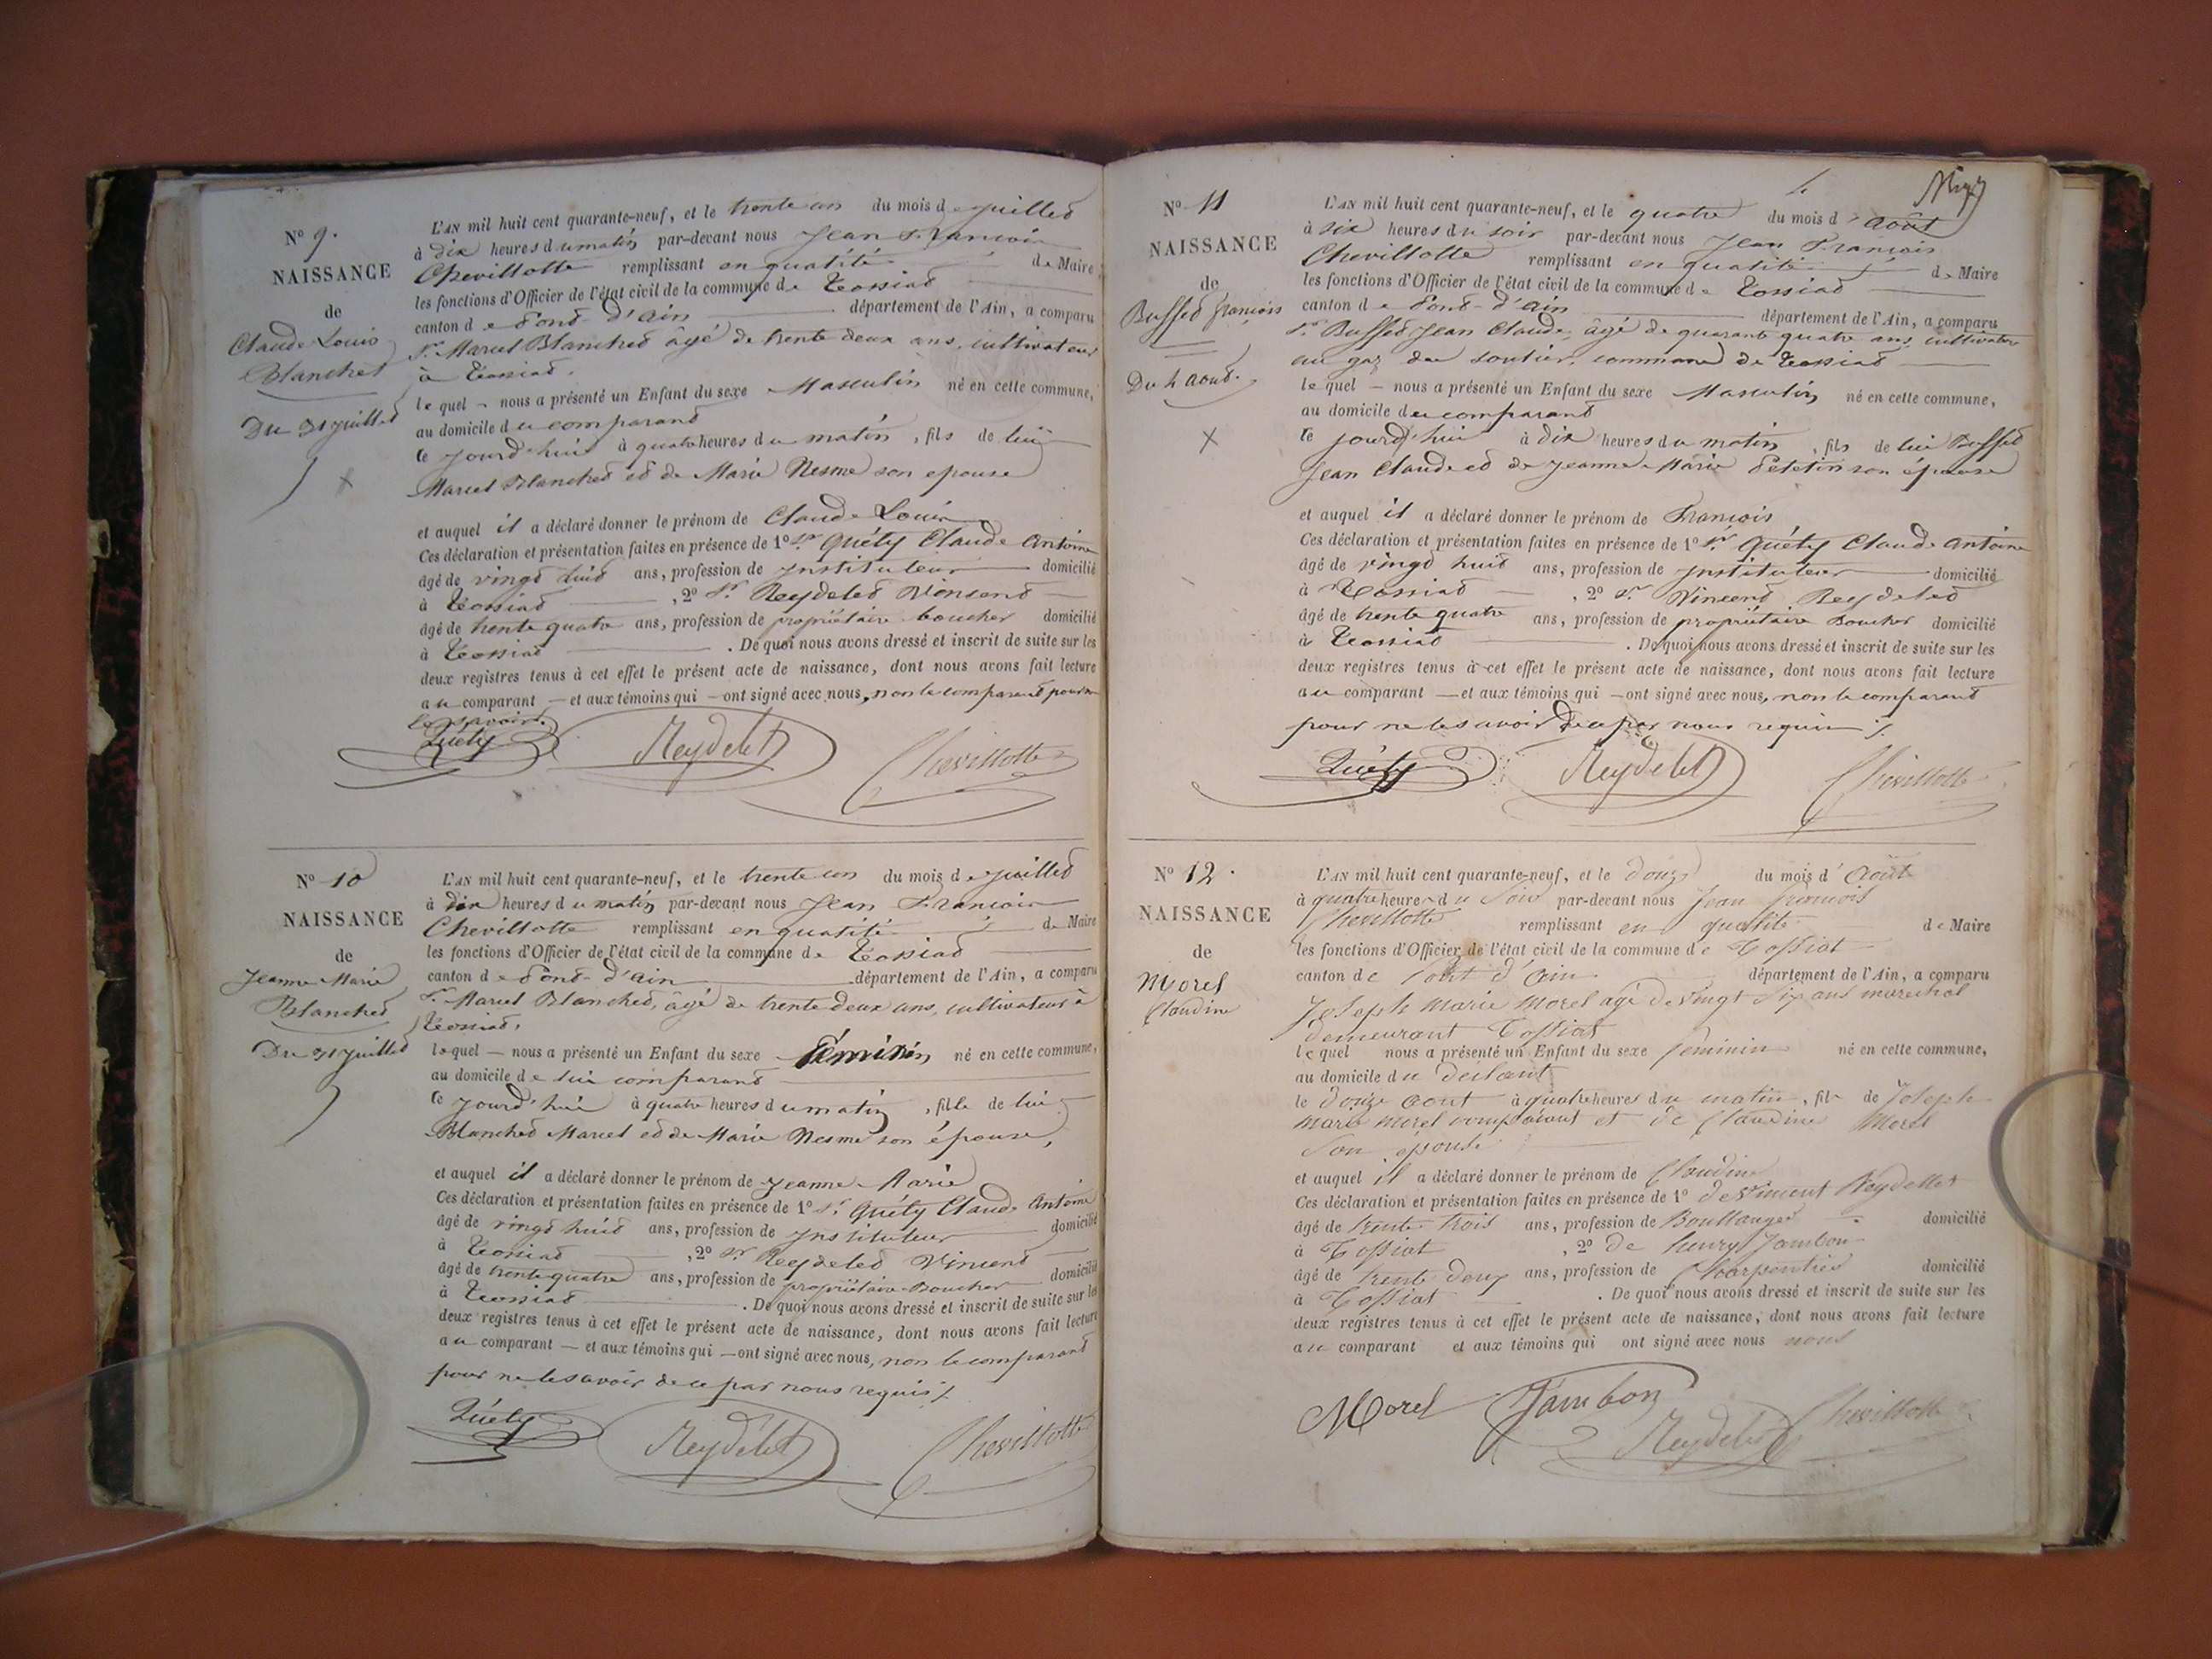 N° 9.
NAISSANCE
de
Claude Louis
Blanchet
Du 31 juillet
L'AN mil huit cent quarante-neuf, et le trente un du mois de juillet
à dix heures du matin par-devant nous Jean François
Chevillotte remplissant en qualité de Maire
les fonctions d'Officier de l'état civil de la commune de Tossiat
canton de Pont-d'ain département de l'Ain, a comparu
Sr. Marcel Blanchet âgé de trente deux ans, cultivateur
à Tossiat.
lequel nous a présenté un Enfant du sexe Masculin né en cette commune,
au domicile du comparant
ce jourd'hui à quatre heures du matin, fils de lui
Marcel Blanchet et de Marie Nesme son epouse
et auquel il a déclaré donner le prénom de Claude Louis
Ces déclaration et présentation faites en présence de 1° Sr. Quéty Claude Antoine
âgé de vingt huit ans, profession de instituteur domicilié
à Tossiat, 2° Sr. Reydelet Vinsent
âgé de trente quatre ans, profession de propriétaire boucher domicilié
à Tossiat. De quoi nous avons dressé et inscrit de suite sur les
deux registres tenus à cet effet le présent acte de naissance, dont nous avons fait lecture
au comparant et aux témoins qui ont signé avec nous, non le comparant pour ne
le savoir.
Quéty Reydelet Chevillotte
N° 10
NAISSANCE
de
Jeanne Marie
Blanchet
Du 31 juillet
L'AN mil huit cent quarante-neuf, et le trente un du mois de juillet
à dix heures du matin par-devant nous Jean François
Chevillotte remplissant en qualité de Maire
les fonctions d'Officier de l'état civil de la commune de Tossiat
canton de Pont-d'ain département de l'Ain, a comparu
Sr. Marcel Blanchet, âgé de trente deux ans, cultivateur à
Tossiat.
lequel nous a présenté un Enfant du sexe féminin né en cette commune,
au domicile de lui comparant
ce jourd'hui à quatre heures du matin, fille de lui
Blanchet Marcel et de Marie Nesme son épouse,
et auquel il a déclaré donner le prénom de Jeanne Marie
Ces déclaration et présentation faites en présence de 1° Sr. Quéty Claude Antoine
âgé de vingt huit ans, profession de instituteur domicilié
à Tossiat, 2° Sr. Reydelet Vincent
âgé de trente quatre ans, profession de propriétaire Boucher domicilié
à Tossiat. De quoi nous avons dressé et inscrit de suite sur les
deux registres tenus à cet effet le présent acte de naissance, dont nous avons fait lecture
au comparant et aux témoins qui ont signé avec nous, non le comparant
pour ne le savoir de ce par nous requis ./.
Quéty Reydelet Chevillotte
N° 11
NAISSANCE
de
Buffed françois
Du 4 aout.
L'AN mil huit cent quarante-neuf, et le quatre du mois d'Août
à six heures du soir par-devant nous Jean François
Chevillotte remplissant en qualité de Maire
les fonctions d'Officier de l'état civil de la commune de Tossiat
canton de Pont-d'ain département de l'Ain, a comparu
Sr. Buffed Jean Claude, âgé de quarante quatre ans, cultivateur
au gaz du soutier, commune de Tossiat
lequel nous a présenté un Enfant du sexe Masculin né en cette commune,
au domicile du comparant
ce jourd'hui à dix heures du matin, fils de lui Buffed
Jean Claude et de Jeanne Marie Petetin son épouse
et auquel il a déclaré donner le prénom de François
Ces déclaration et présentation faites en présence de 1° Sr. Quéty Claude Antoine
âgé de vingt huit ans, profession de instituteur domicilié
à Tossiat, 2° Sr. Vincent Reydelet
âgé de trente quatre ans, profession de propriétaire Boucher domicilié
à Tossiat. De quoi nous avons dressé et inscrit de suite sur les
deux registres tenus à cet effet le présent acte de naissance, dont nous avons fait lecture
au comparant et aux témoins qui ont signé avec nous, non le comparant
pour ne le savoir de ce par nous requis ./.
Quéty Reydelet Chevillotte
N° 12.
NAISSANCE
de
Morel
Claudine
L'AN mil huit cent quarante-neuf, et le douze du mois d'Août
à quatre heures du Soir par-devant nous Jean françois
Chevillotte remplissant en qualité de Maire
les fonctions d'Officier de l'état civil de la commune de Tossiat
canton de Pont d'ain département de l'Ain, a comparu
Joseph Marie Morel agé de vingt six ans marechal
demeurant Tossiat
lequel nous a présenté un Enfant du sexe féminin né en cette commune,
au domicile du declarent
le douze aout à quatre heures du matin, fils de Joseph
Marie Morel comparant et de Claudine Morel
Son épouse
et auquel il a déclaré donner le prénom de Claudine
Ces déclaration et présentation faites en présence de 1° de Vincent Reydellet
âgé de trente trois ans, profession de Boullanger domicilié
à Tossiat, 2° de henry Jambon
âgé de trente deux ans, profession de Charpentier domicilié
à Tossiat. De quoi nous avons dressé et inscrit de suite sur les
deux registres tenus à cet effet le présent acte de naissance, dont nous avons fait lecture
au comparant et aux témoins qui ont signé avec nous nous
Morel Jambon
Reydelet Chevillotte